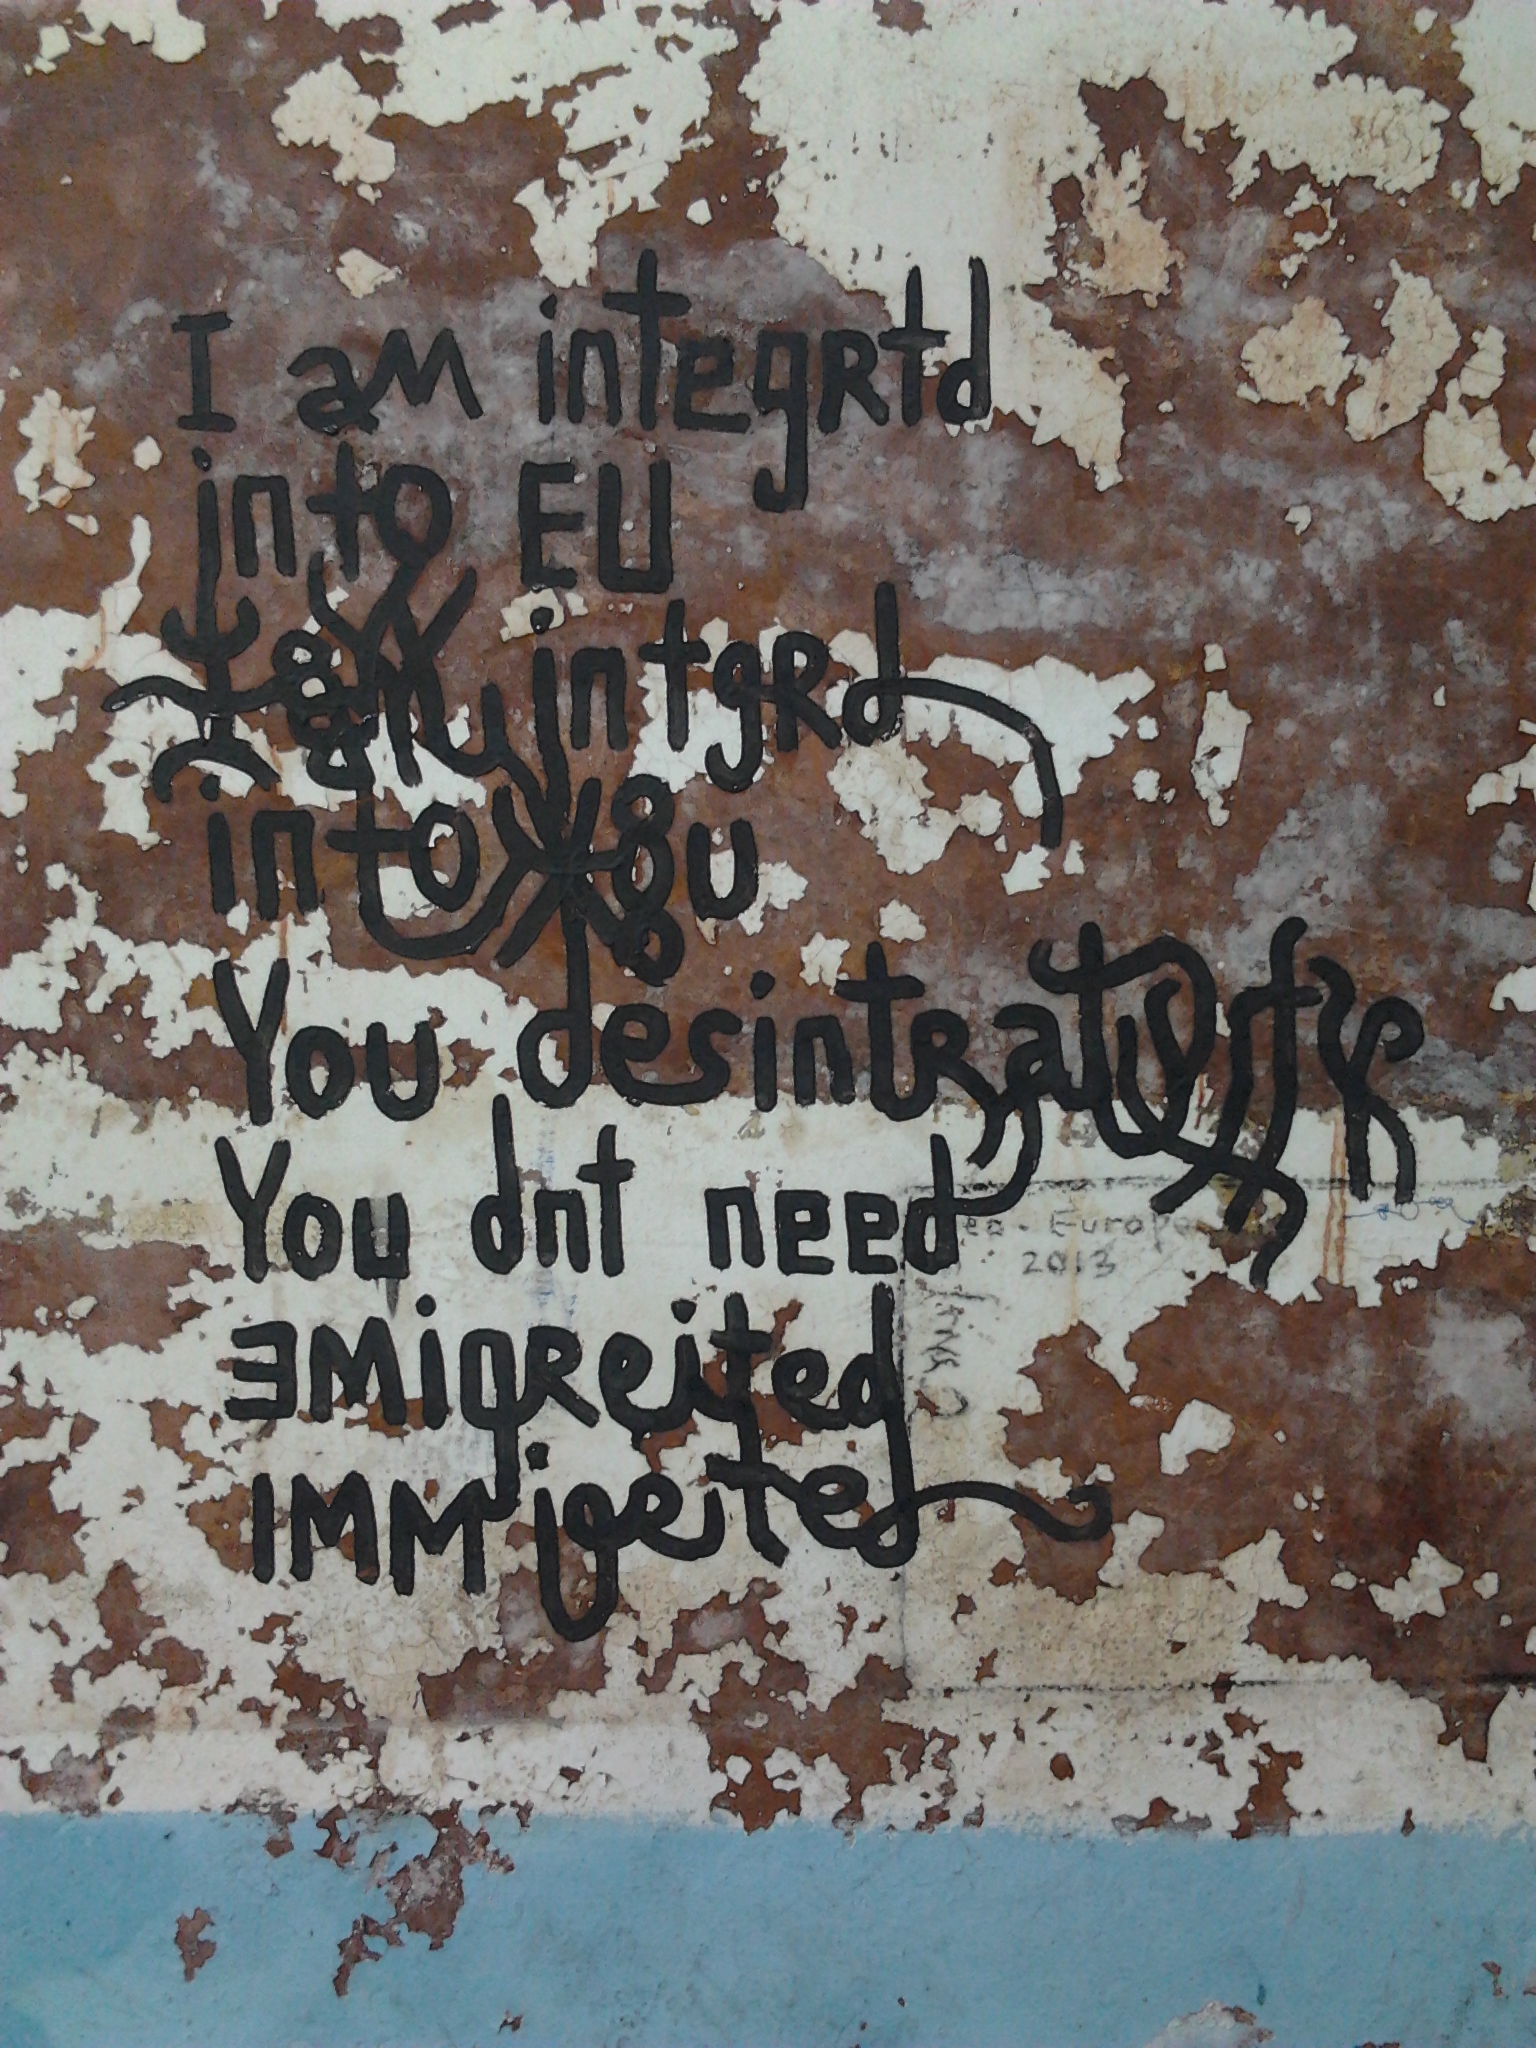 I am integrtd
into EU
intgrd
into u
You
You dnt need
EMigreited
IMMigeited
Europe
2013